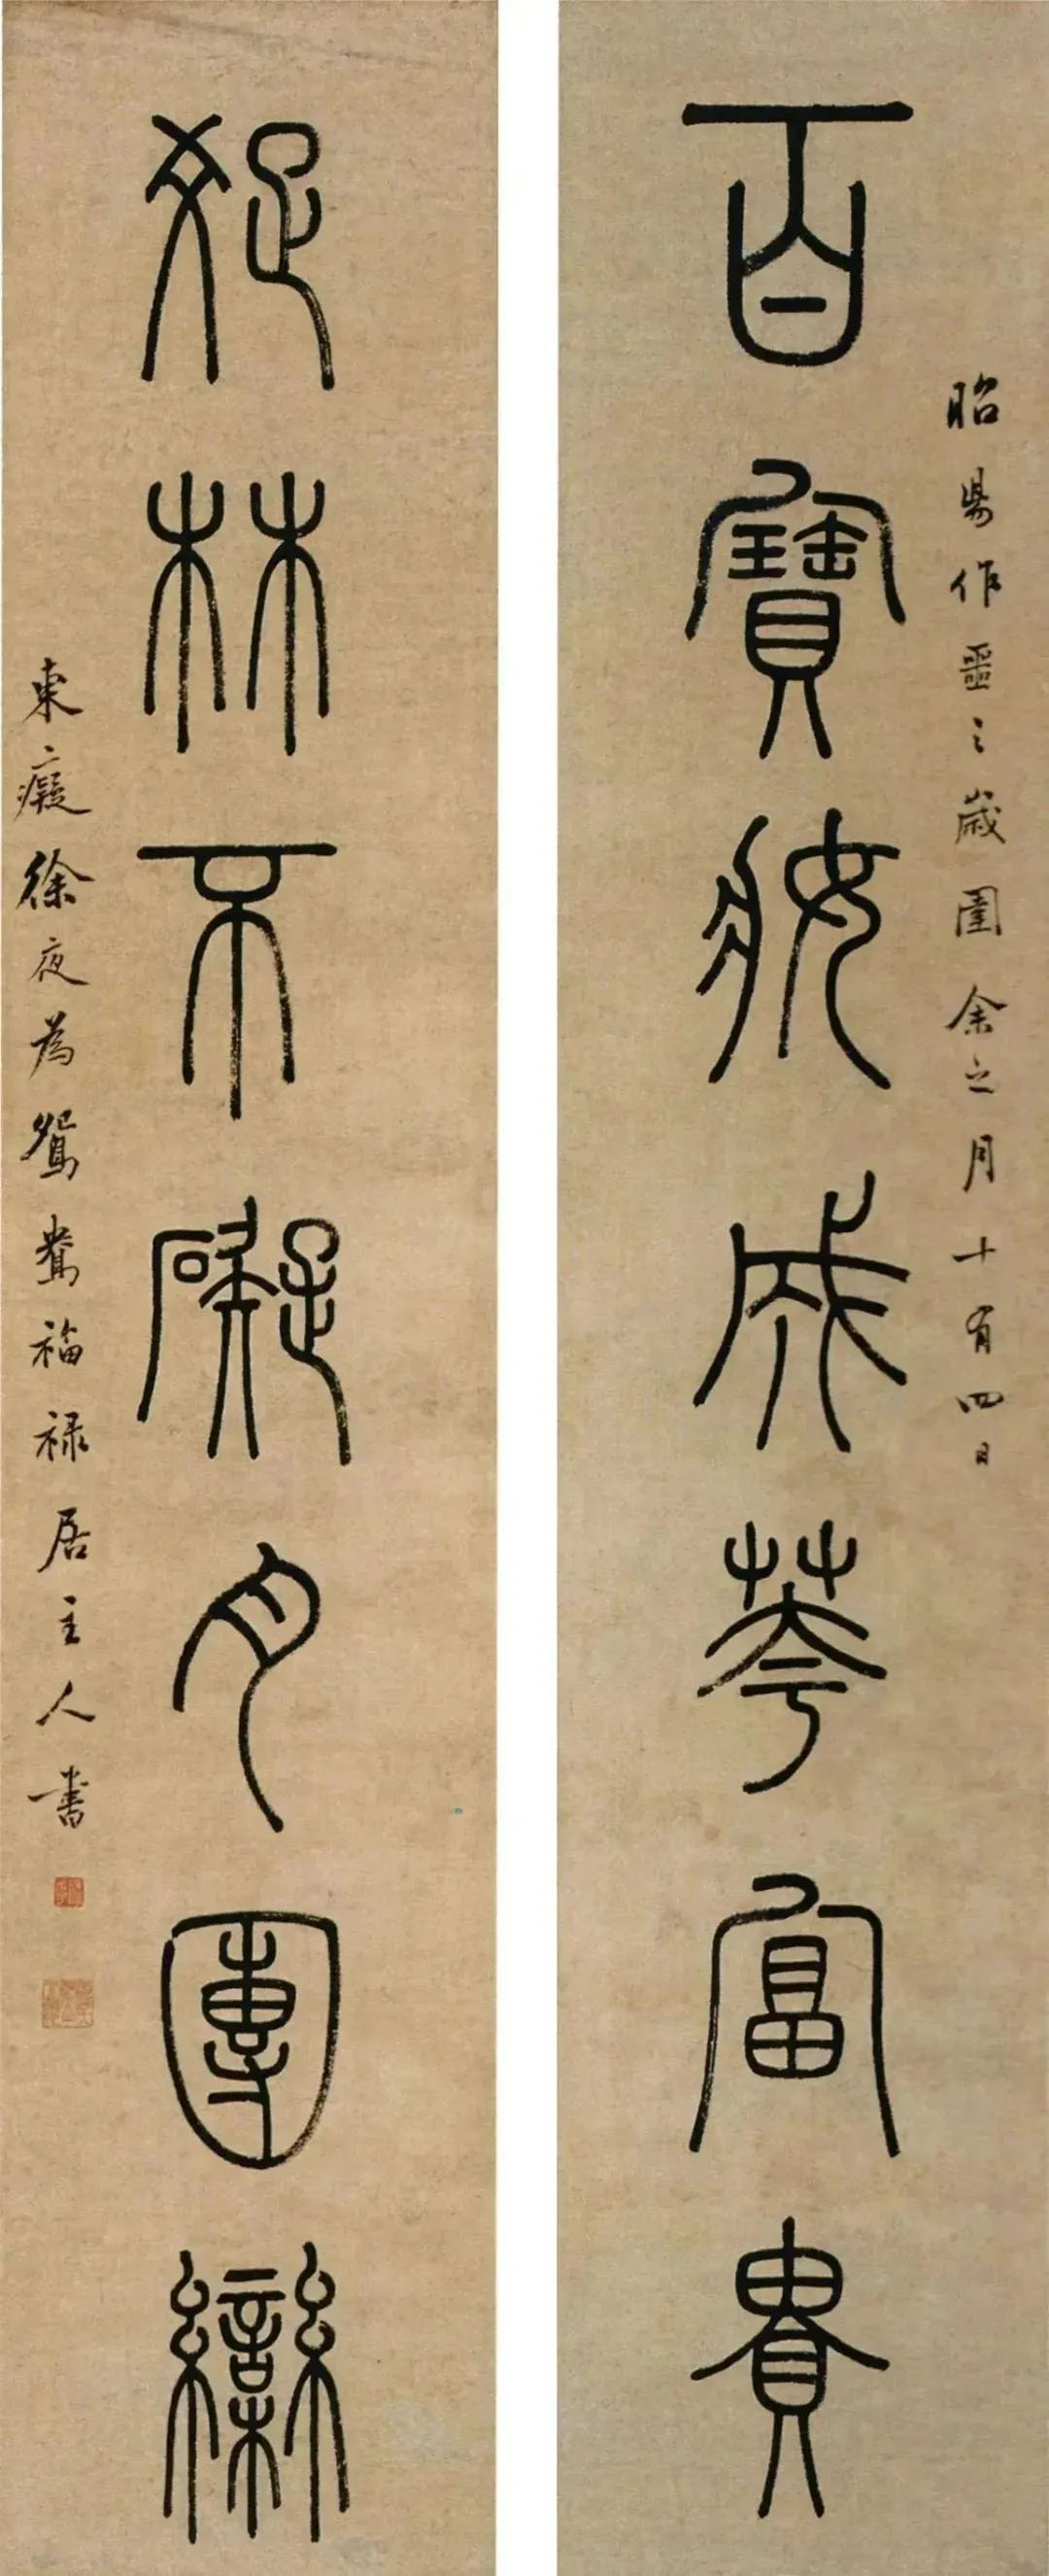 昭昜作噩之歲圉余之月十有四日
百寶妝成華富貴
疏林不礙月團欒
東癡徐夜為鴛鴦福祿居主人書